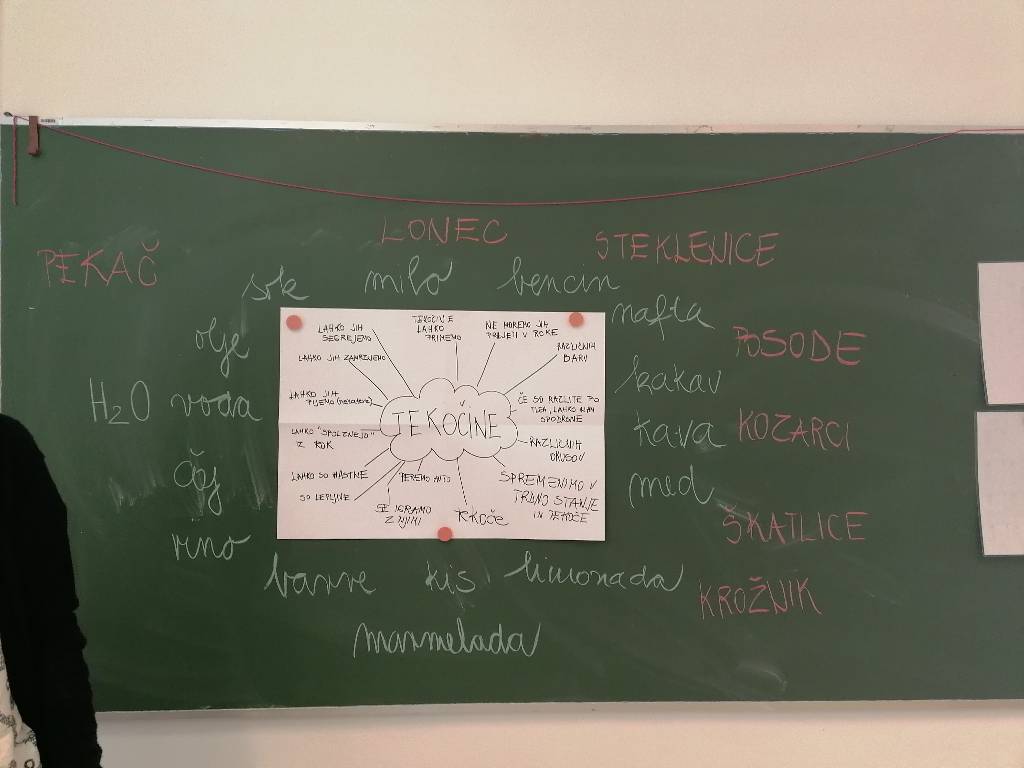 LONEC
STEKLENICE
PEKAČ
sok
milo
bencin
nafta
olje
POSODE
H2O voda
kakav
kava
KOZARCI
čaj
med
ŠKATLICE
vino
barve
kis
limonada
KROŽNIK
marmelada
LAHKO JIH
SEGREJEMO
TEKOČINE
LAHKO
PRIMEMO
NE MOREMO JIH
PRIJETI V ROKE
RAZLIČNIH
BARV
LAHKO JIH ZAMRZNEMO
LAHKO JIH
PIJEMO (nekatere)
TEKOČINE
ČE SO RAZLITE PO
TLEH, LAHKO NAM
SPODRSNE
LAHKO "SPOLZNEJO"
Z ROK
RAZLIČNIH
OKUSOV
LAHKO SO MASTNE
PEREMO AVTO
SPREMENIMO V
TRDNO STANJE
IN TEKOČE
SO LEPLJIVE
SE IGRAMO
Z NJIMI